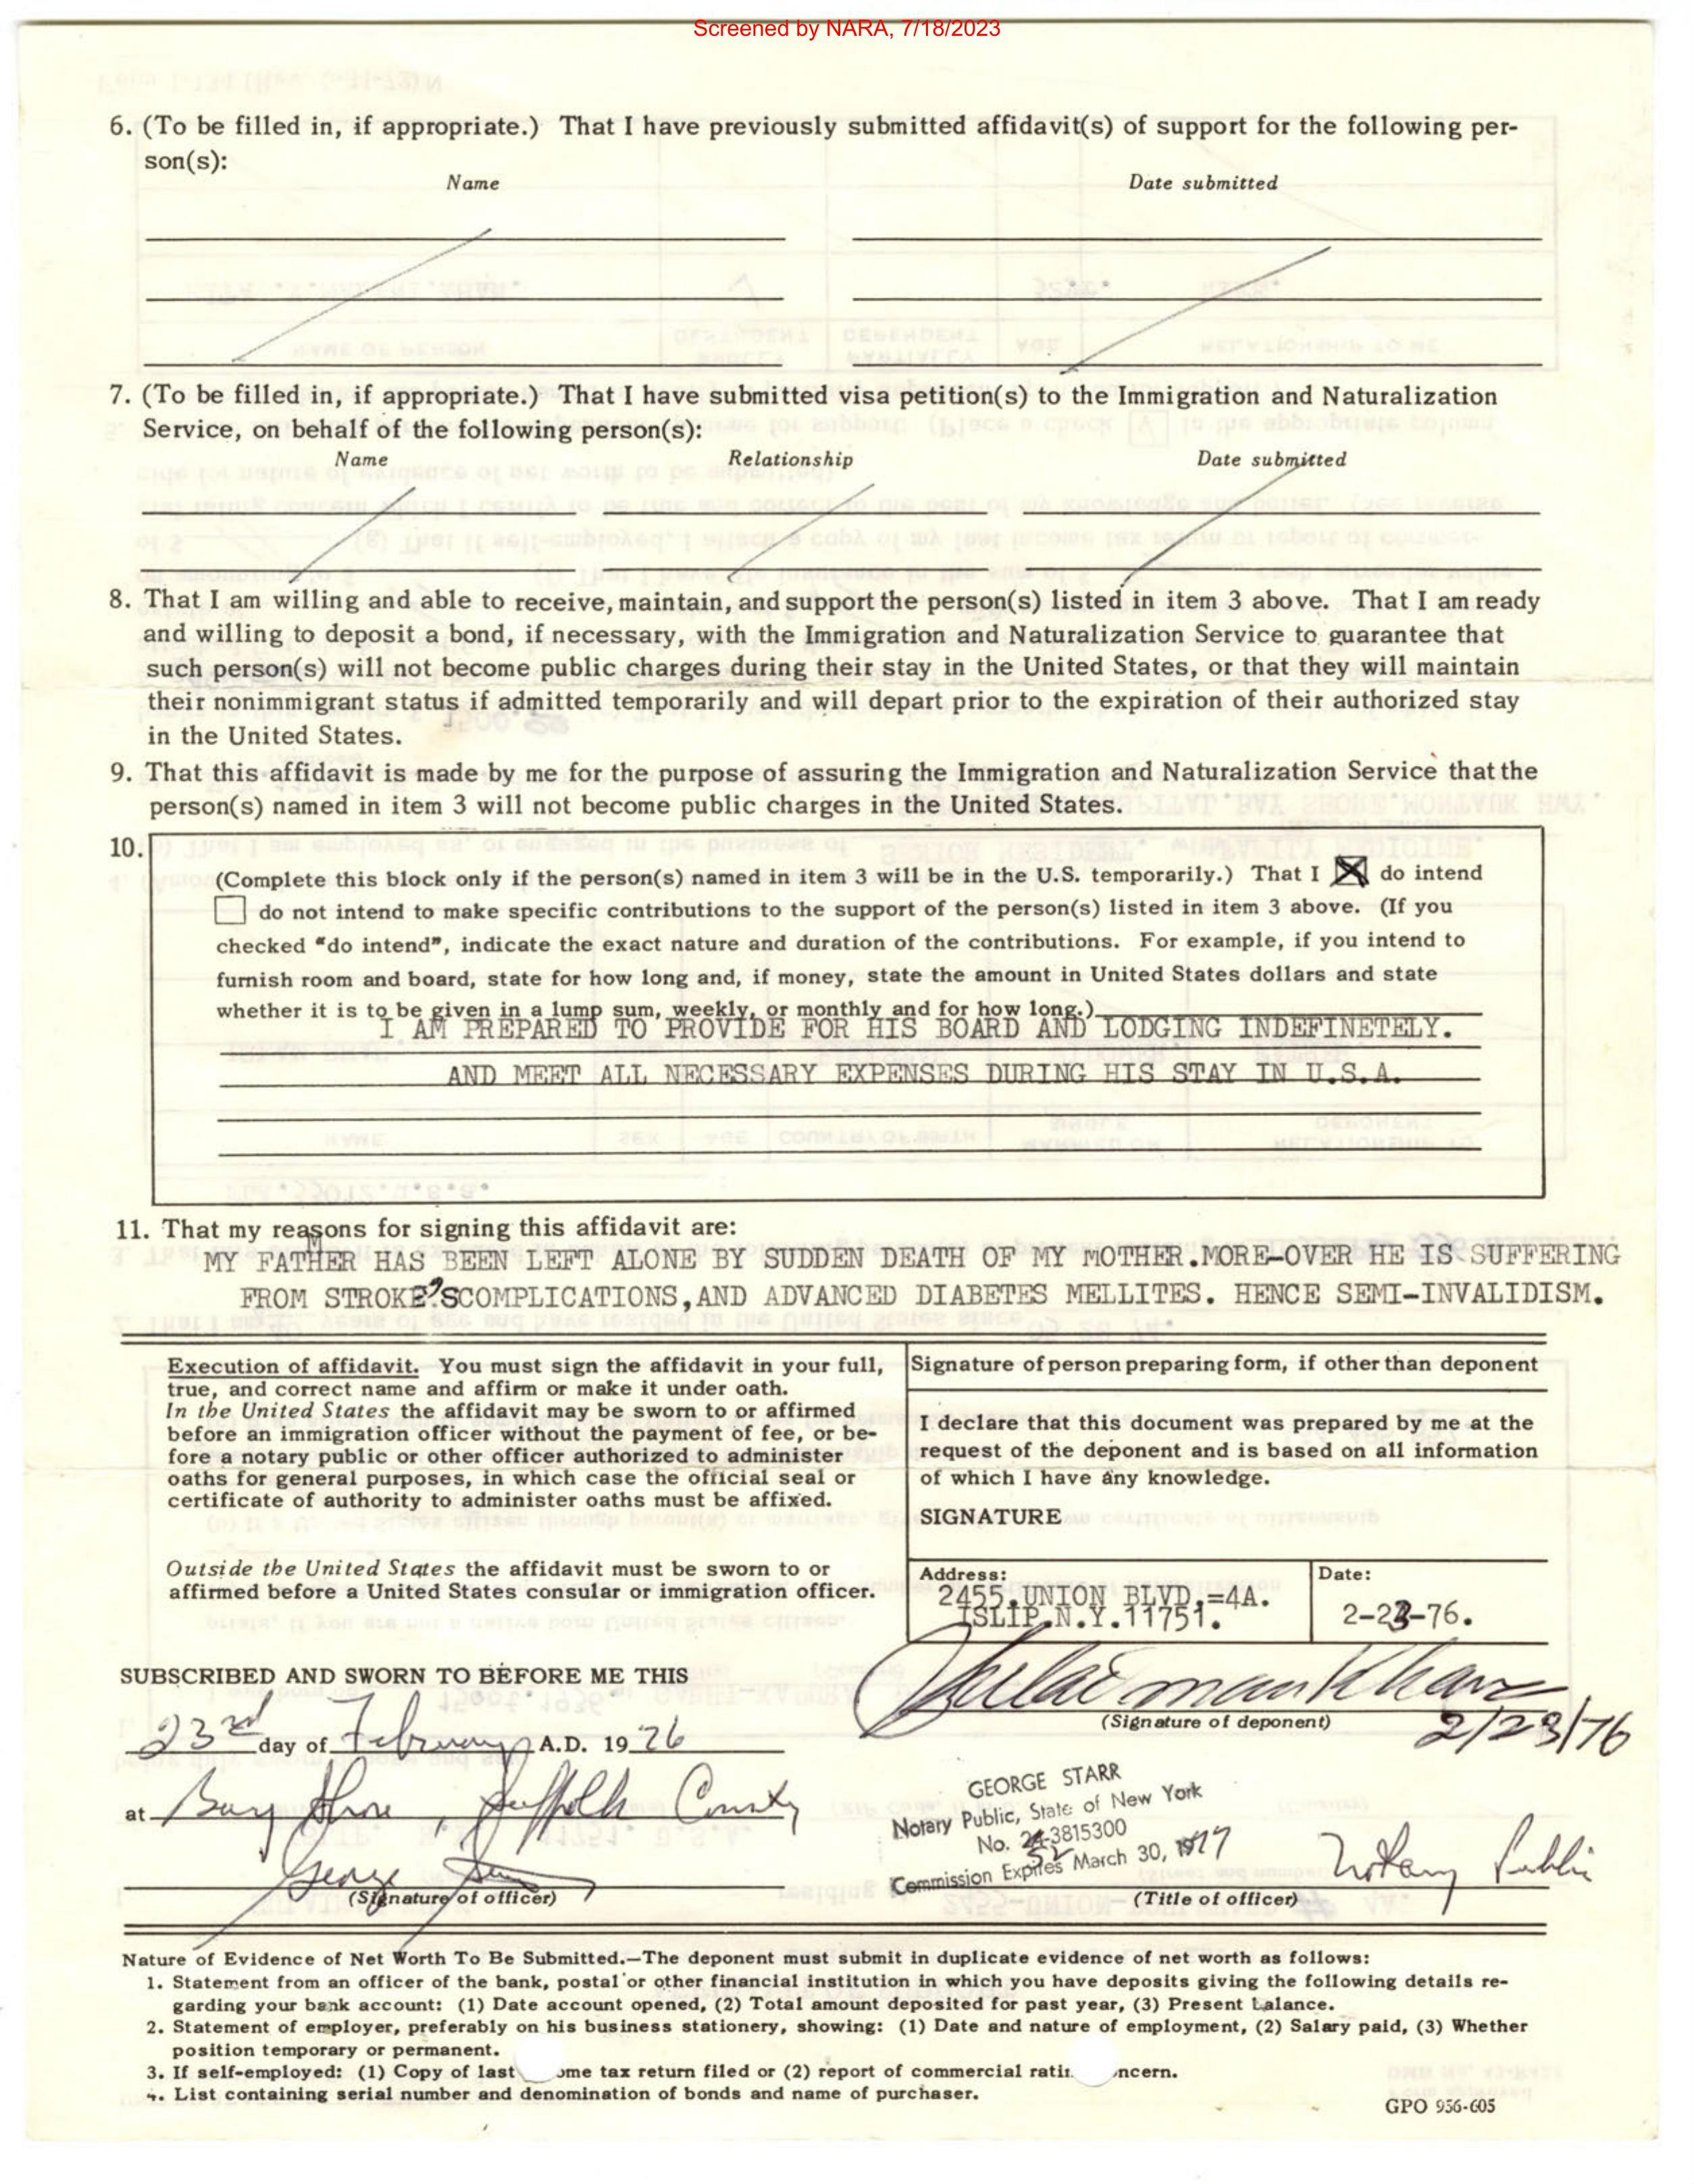 Screened by NARA, 7/18/2023
6. (To be filled in, if appropriate.) That I have previously submitted affidavit(s) of support for the following per-
son(s):
Name Date submitted
7. (To be filled in, if appropriate.) That I have submitted visa petition(s) to the Immigration and Naturalization
Service, on behalf of the following person(s):
Name Relationship Date submitted
8. That I am willing and able to receive, maintain, and support the person(s) listed in item 3 above. That I am ready
and willing to deposit a bond, if necessary, with the Immigration and Naturalization Service to guarantee that
such person(s) will not become public charges during their stay in the United States, or that they will maintain
their nonimmigrant status if admitted temporarily and will depart prior to the expiration of their authorized stay
in the United States.
9. That this affidavit is made by me for the purpose of assuring the Immigration and Naturalization Service that the
person(s) named in item 3 will not become public charges in the United States.
10.
(Complete this block only if the person(s) named in item 3 will be in the U.S. temporarily.) That I X do intend
do not intend to make specific contributions to the support of the person(s) listed in item 3 above. (If you
checked "do intend", indicate the exact nature and duration of the contributions. For example, if you intend to
furnish room and board, state for how long and, if money, state the amount in United States dollars and state
whether it is to be given in a lump sum, weekly, or monthly and for how long.)
I AM PREPARED TO PROVIDE FOR HIS BOARD AND LODGING INDEFINETELY.
AND MEET ALL NECESSARY EXPENSES DURING HIS STAY IN U.S.A.
11. That my reasons for signing this affidavit are:
MY FATHER HAS BEEN LEFT ALONE BY SUDDEN DEATH OF MY MOTHER.MORE-OVER HE IS SUFFERING
FROM STROKE'SCOMPLICATIONS,AND ADVANCED DIABETES MELLITES. HENCE SEMI-INVALIDISM.
Execution of affidavit. You must sign the affidavit in your full,
true, and correct name and affirm or make it under oath.
In the United States the affidavit may be sworn to or affirmed
before an immigration officer without the payment of fee, or be-
fore a notary public or other officer authorized to administer
oaths for general purposes, in which case the official seal or
certificate of authority to administer oaths must be affixed.
Outside the United States the affidavit must be sworn to or
affirmed before a United States consular or immigration officer.
Signature of person preparing form, if other than deponent
I declare that this document was prepared by me at the
request of the deponent and is based on all information
of which I have any knowledge.
SIGNATURE
Address:
2455.UNION BLVD.=4A.
ISLIP.N.Y.11751.
Date:
2-23-76.
SUBSCRIBED AND SWORN TO BEFORE ME THIS
23rd day of February A.D. 19 76
at Bay Shore, Suffolk County
George Starr
(Signature of officer)
Sulaiman Khan
(Signature of deponent)
2/23/76
GEORGE STARR
Notary Public, State of New York
No. 3815300
52
Commission Expires March 30, 1977
Notary Public
(Title of officer)
Nature of Evidence of Net Worth To Be Submitted.—The deponent must submit in duplicate evidence of net worth as follows:
1. Statement from an officer of the bank, postal or other financial institution in which you have deposits giving the following details re-
garding your bank account: (1) Date account opened, (2) Total amount deposited for past year, (3) Present balance.
2. Statement of employer, preferably on his business stationery, showing: (1) Date and nature of employment, (2) Salary paid, (3) Whether
position temporary or permanent.
3. If self-employed: (1) Copy of last ome tax return filed or (2) report of commercial ratin ncern.
4. List containing serial number and denomination of bonds and name of purchaser.
GPO 956-605